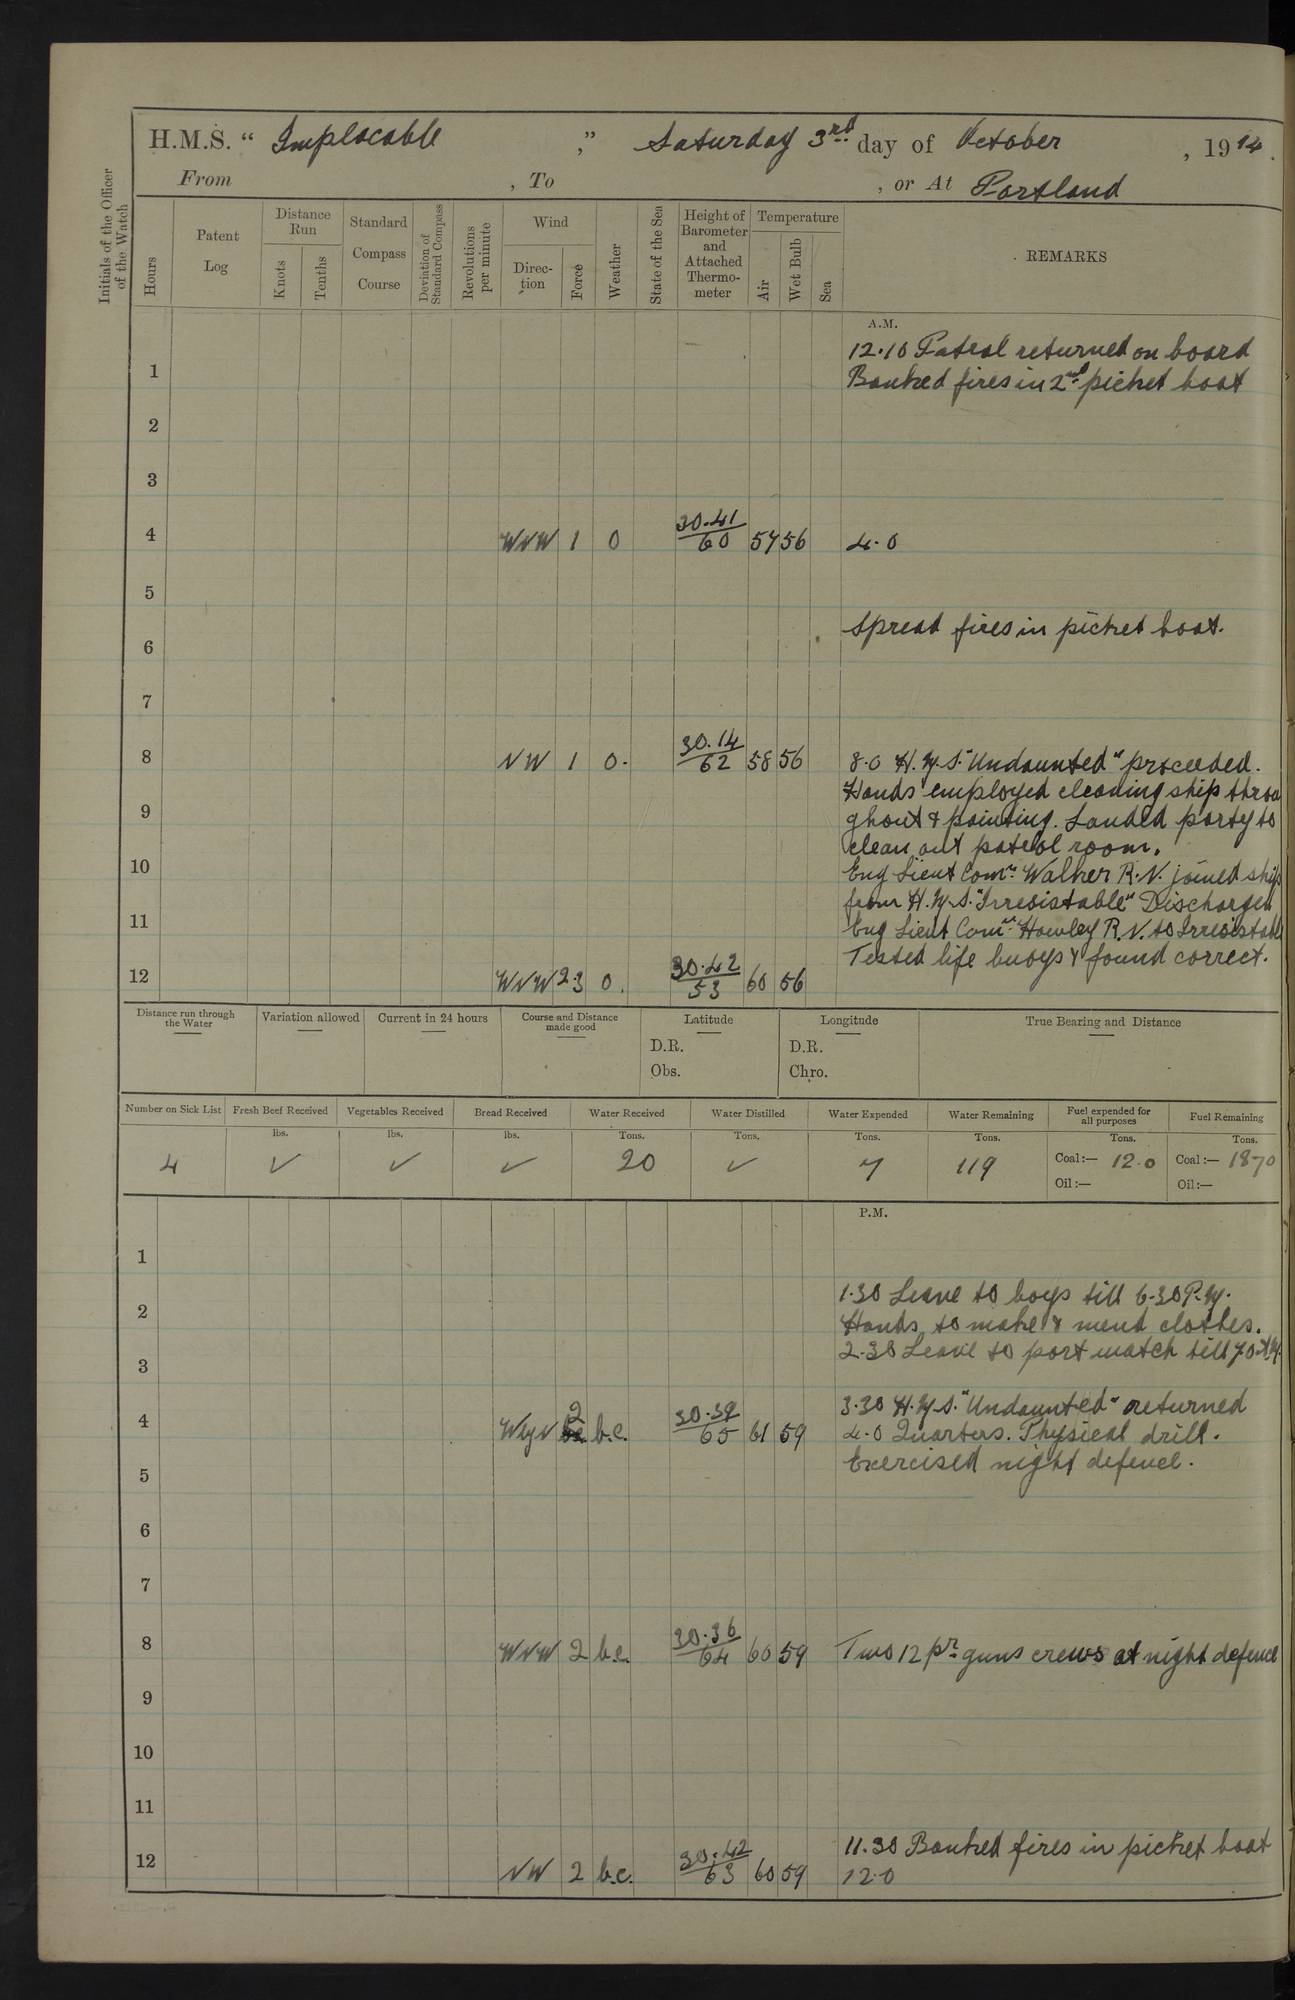 H.M.S. “ Implacable ,” Saturday 3rd day of October , 1914.
From , To , or At Portland
Initials of the Officer of the Watch
Hours
Patent Log
Distance Run
Knots
Tenths
Standard Compass Course
Deviation of Standard Compass
Revolutions per minute
Wind
Direction
Force
Weather
State of the Sea
Height of Barometer and Attached Thermometer
Temperature
Air
Wet Bulb
Sea
REMARKS
A.M.
12.10 Patrol returned on board
1 Banked fires in 2nd picket boat
2
3
4 WNW 1 0 30.41/60 57 56 4.0
5
Spread fires in picket boat.
6
7
8 NW 1 0. 30.14/62 58 56 8.0 H.M.S. "Undaunted" proceeded.
Hands employed cleaning ship throu
9 ghout & painting. Landed party to
clean out patrol room.
10 Eng Lieut Comr. Walker R.N. joined ship
from H.M.S. "Irresistable" Discharged
11 Eng Lieut Comr. Howley R.N. to Irresistable
Tested life buoys & found correct.
12 WNW 2.3 0. 30.42/53 60 56
Distance run through the Water
Variation allowed
Current in 24 hours
Course and Distance made good
Latitude
D.R.
Obs.
Longitude
D.R.
Chro.
True Bearing and Distance
Number on Sick List Fresh Beef Received Vegetables Received Bread Received Water Received Water Distilled Water Expended Water Remaining Fuel expended for all purposes Fuel Remaining
lbs. lbs. lbs. Tons. Tons. Tons. Tons. Tons. Tons.
4 ✓ ✓ ✓ 20 ✓ 7 119 Coal:— 12.0 Coal:— 1870
Oil:— Oil:—
P.M.
1
1.30 Leave to boys till 6.30 P.M.
2 Hands to make & mend clothes.
3 2.30 Leave to port watch till 7.0 A.M.
3.30 H.M.S. "Undaunted" returned
4 WbyN 2 b.c. 30.39/65 61 59 4.0 Quarters. Physical drill.
5 Exercised night defence.
6
7
8 WNW 2 b.c. 30.36/64 60 59 Two 12 pr. guns crews at night defence
9
10
11
11.30 Banked fires in picket boat
12 NW 2 b.c. 30.42/63 60 59 12.0